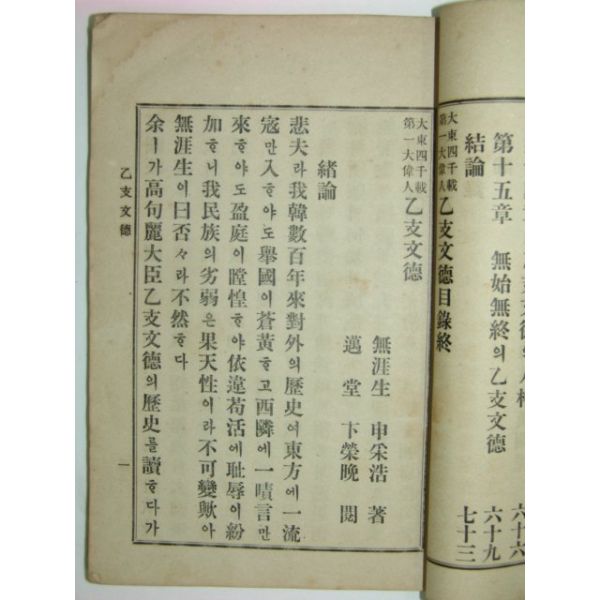 第十五章　無始無終의乙支文德
六十六
六十九
結論
七十三
大東四千載
第一大偉人
乙支文德目錄終
大東四千載
第一大偉人
乙支文德
無涯生　申采浩　著
邁堂　卞榮晚　閱
緖論
悲夫라我韓數百年來對外의歷史여東方에一流
寇만入ᄒᆞ야도舉國이蒼黃ᄒᆞ고西隣에一嘖言만
來ᄒᆞ야도盈庭이瞠惶ᄒᆞ야依違苟活에耻辱이紛
加ᄒᆞ니我民族의劣弱은果天性이라不可變歟아
無涯生이曰否々라不然ᄒᆞ다
余ㅣ가高句麗大臣乙支文德의歷史를讀ᄒᆞ다가
乙支文德
一